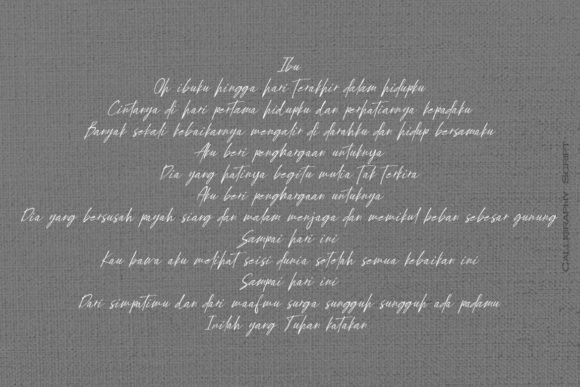 Ibu
Oh ibuku hingga hari terakhir dalam hidupku
Cintanya di hari pertama hidupku dan perhatiannya kepadaku
Banyak sekali kebaikannya mengalir di darahku dan hidup bersamaku
Aku beri penghargaan untuknya
Dia yang hatinya begitu mulia tak terkira
Aku beri penghargaan untuknya
Dia yang bersusah payah siang dan malam menjaga dan memikul beban sebesar gunung
Sampai hari ini
Kau bawa aku melihat seisi dunia setelah semua kebaikan ini
Sampai hari ini
Dari simpatimu dan dari maafmu surga sungguh sungguh ada padamu
Inilah yang Tuhan katakan
Calligraphy Script